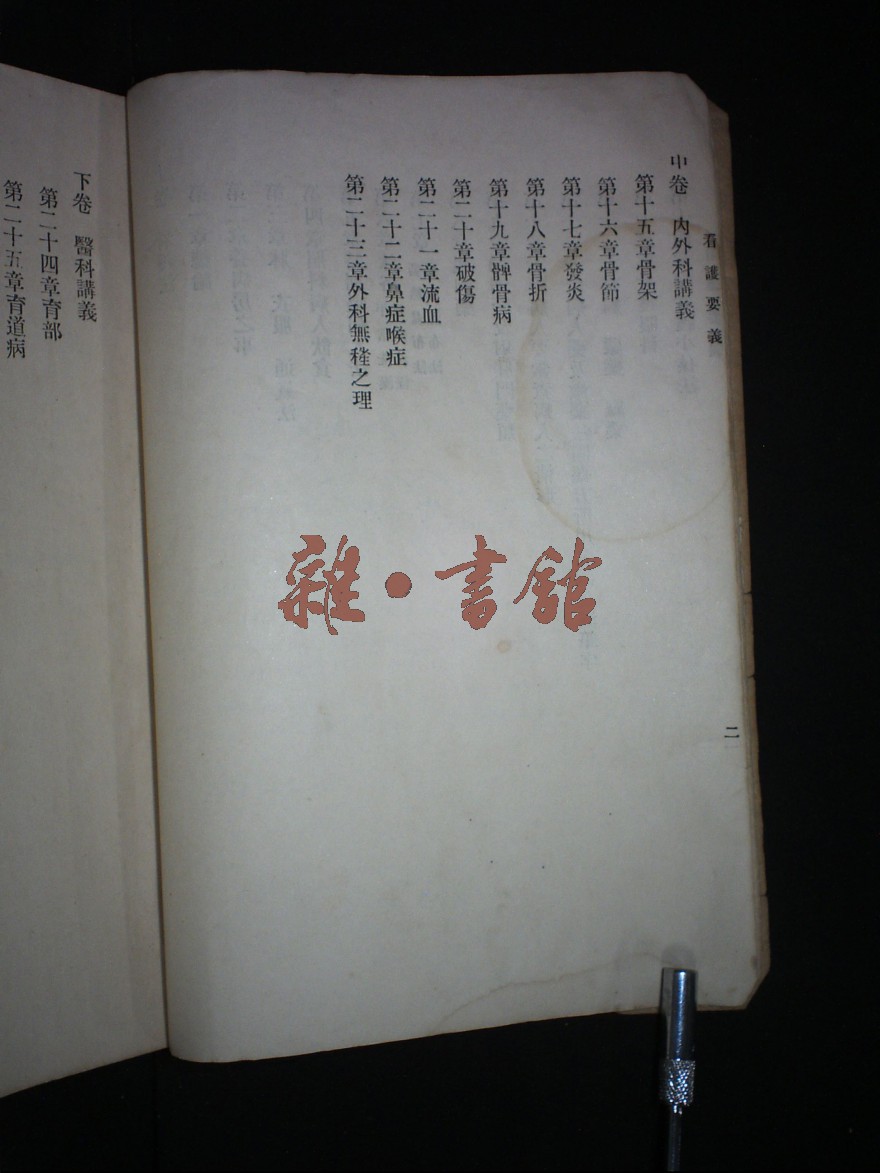 看護要義
中卷 內外科講義
第十五章骨架
第十六章骨節
第十七章發炎
第十八章骨折
第十九章髀骨病
第二十章破傷
第二十一章流血
第二十二章鼻症喉症
第二十三章外科無𧏾之理
二
下卷 醫科講義
第二十四章育部
第二十五章育道病
雜·書館